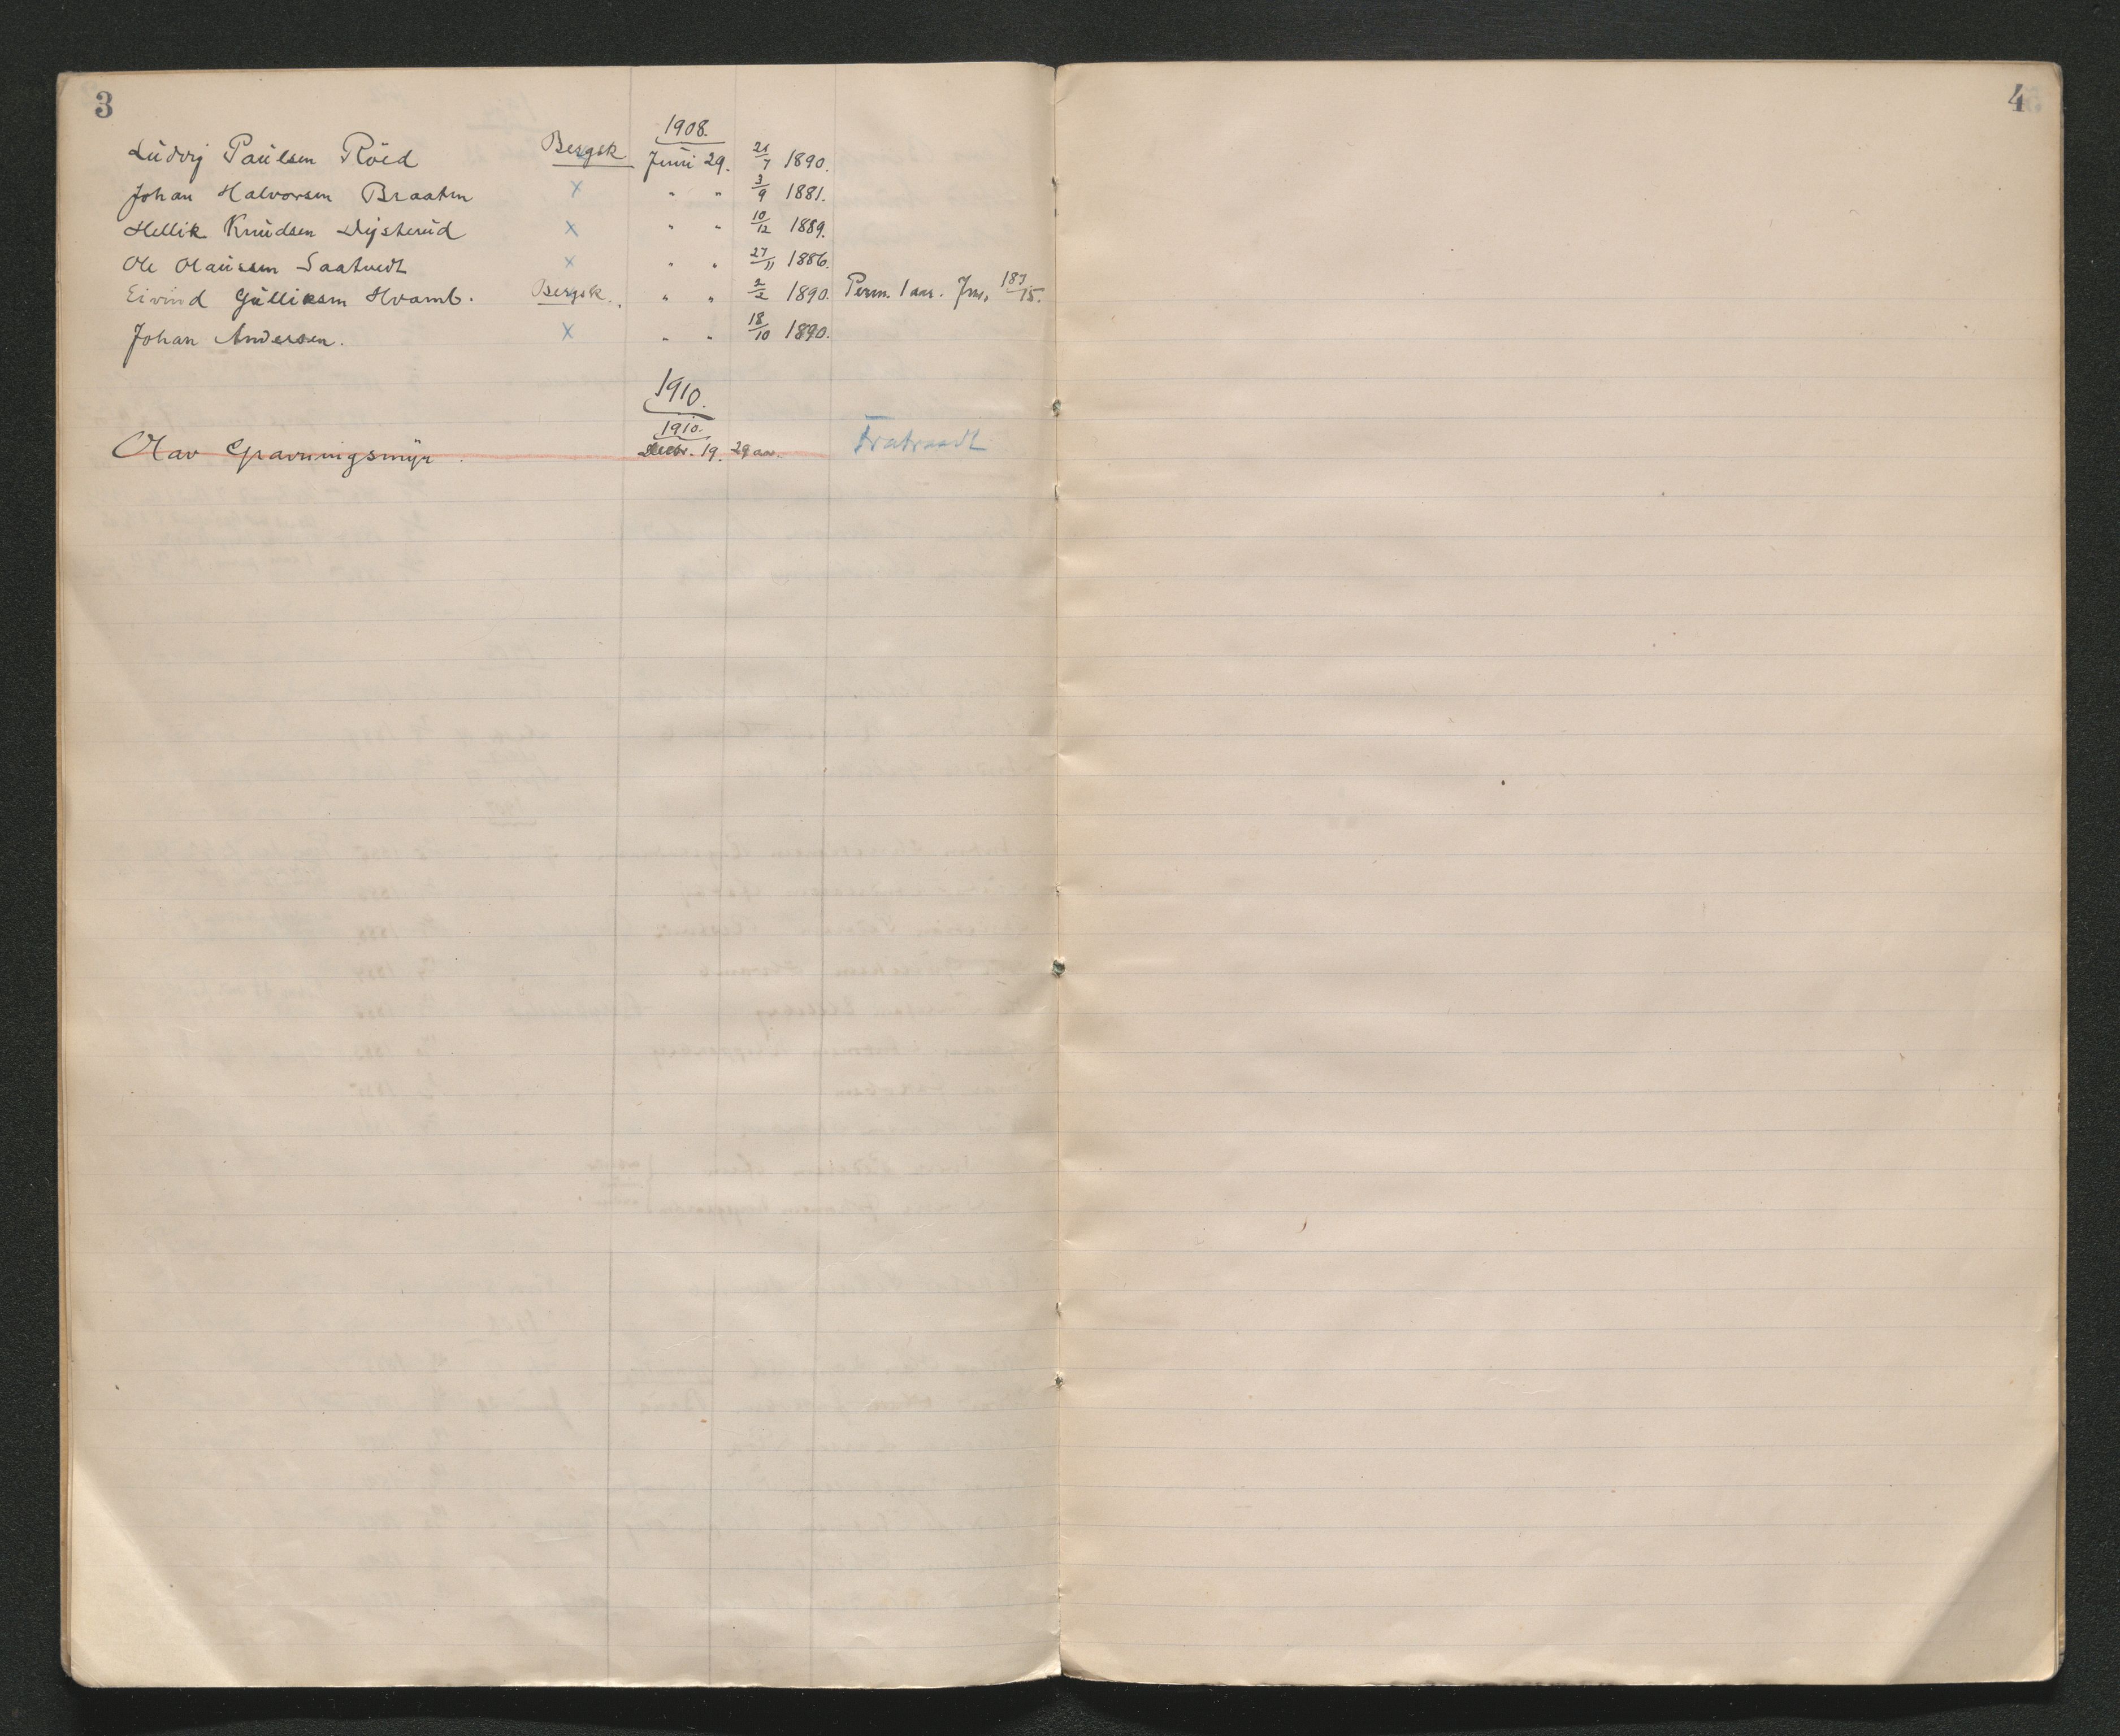 3
4
1908.
Ludvig Paulsen Röed Bergsk Juni 29. 21/7 1890.
Johan Halvorsen Braaten x " " 3/9 1881.
Hellik Knudsen Dysterud x " " 10/12 1889.
Ole Olaussen Saatvedt x " " 27/11 1886.
Eivind Gulliksen Hvamb. Bergsk. " " 2/2 1890. Perm. 1 aar. Jnr. 187/15.
Johan Andersen. x " " 18/10 1890.
1910.
1910.
Olav Gravningsmyr. Decbr. 19. 29 aar. Fratraadt